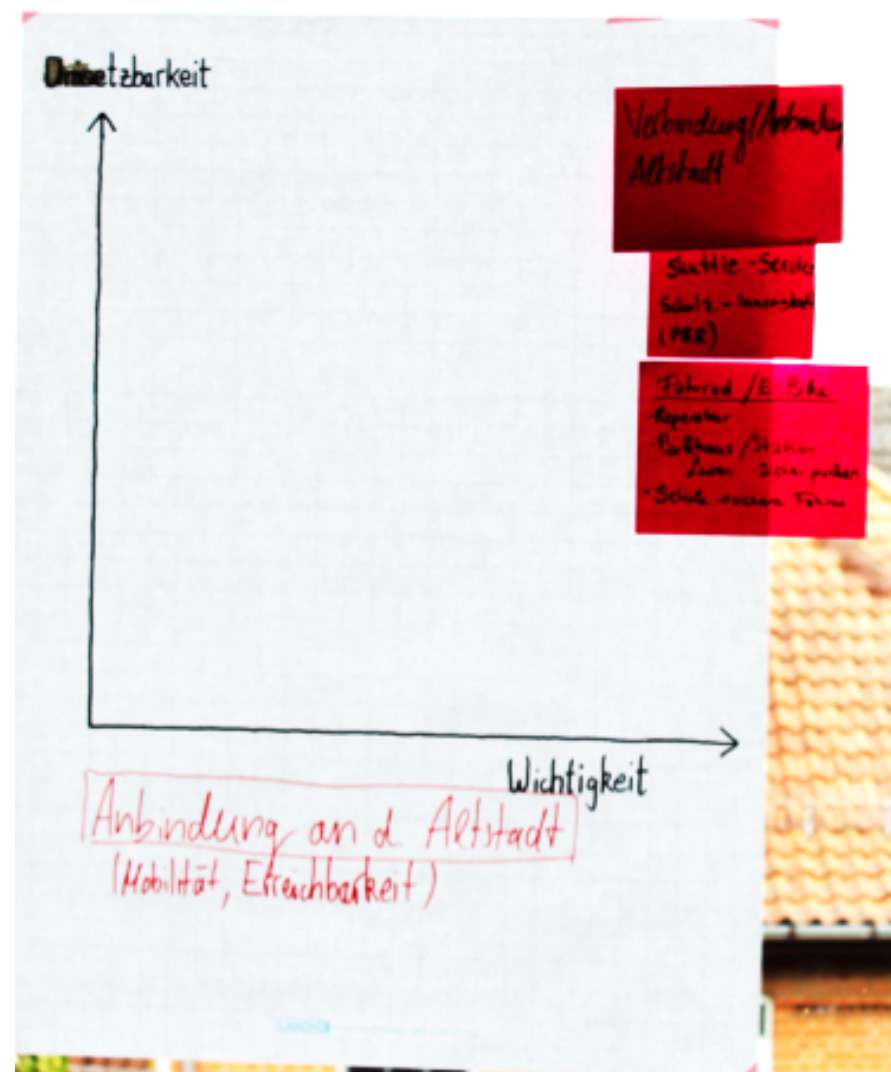 Umsetzbarkeit
Verbindung/Anbindung
Altstadt
Shuttle-Service
Schulz -
(PBR)
Fahrrad / E-Bike
- Reparatur
- Parkhaus / Station
Laden - Sicher parken
- Schule sichere Fahren
Wichtigkeit
Anbindung an d Altstadt
(Mobilität, Erreichbarkeit)